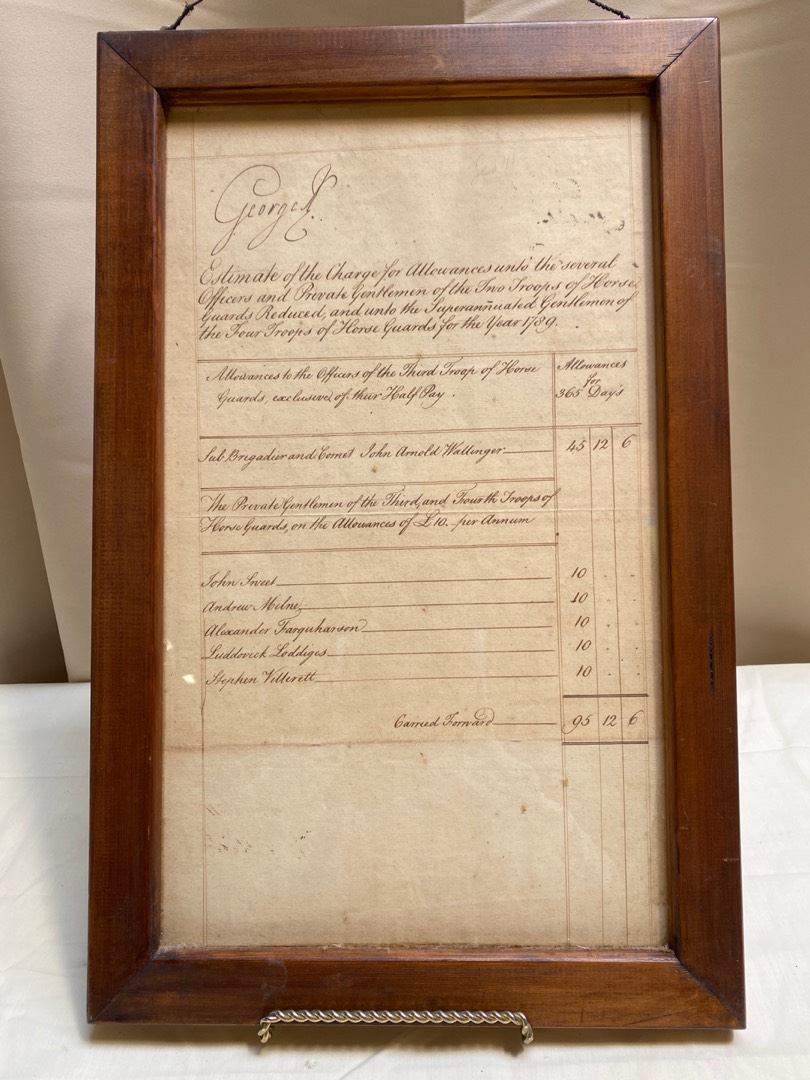 George R.
Estimate of the Charge for Allowances unto the several
Officers and Private Gentlemen of the Two Troops of Horse
Guards Reduced, and unto the Superannuated Gentlemen of
the Four Troops of Horse Guards for the Year 1789.
Allowances to the Officers of the Third Troop of Horse
Guards, exclusive of their Half Pay.
Allowances
for
365 Days
Sub Brigadier and Cornet John Arnold Wallinger 45 12 6
The Private Gentlemen of the Third, and Fourth Troops of
Horse Guards, on the Allowances of £10. per Annum
John Sweet 10 . .
Andrew Milne 10 . .
Alexander Farquharson 10 . .
Luddovick Loddiges 10 . .
Stephen Villerett 10 . .
Carried Forward 95 12 6